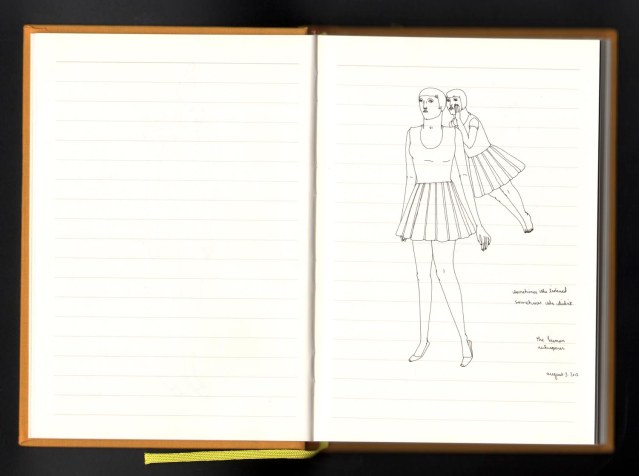 sometimes she listened
sometimes she didn't
the human
august 3, 2012